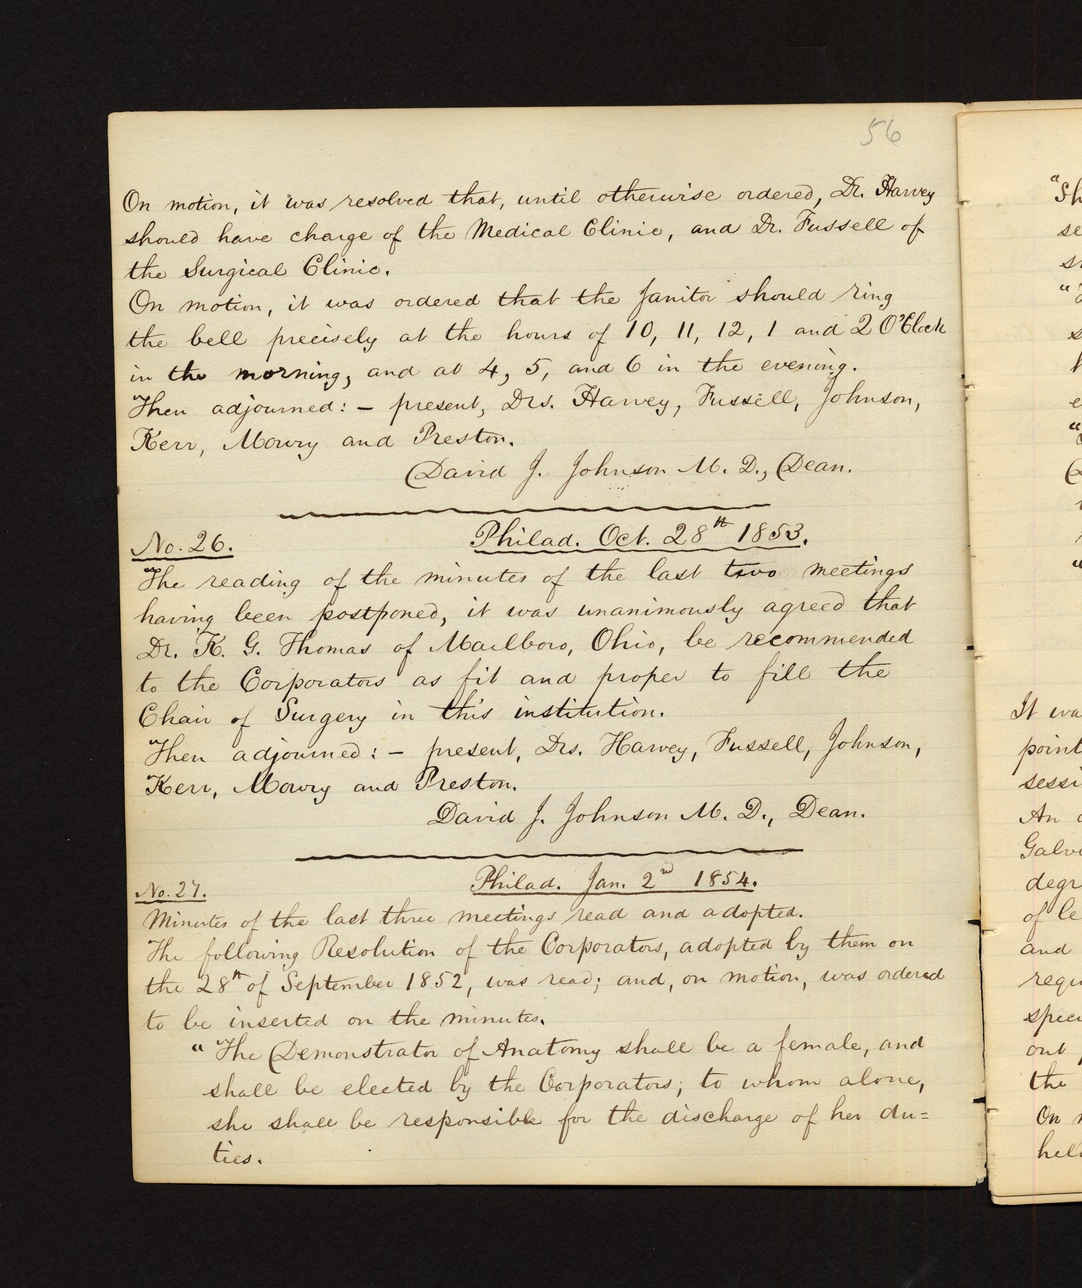 56
On motion, it was resolved that, until otherwise ordered, Dr. Harvey
should have charge of the Medical Clinic, and Dr. Fussell of
the Surgical Clinic.
On motion, it was ordered that the Janitor should ring
the bell precisely at the hours of 10, 11, 12, 1 and 2 O'Clock
in the morning, and at 4, 5, and 6 in the evening.
Then adjourned:- present, Drs. Harvey, Fussell, Johnson,
Kerr, Mowry and Preston.
David J. Johnson M. D., Dean.
No. 26. Philad. Oct. 28th 1853.
The reading of the minutes of the last two meetings
having been postponed, it was unanimously agreed that
Dr. K. G. Thomas of Marlboro, Ohio, be recommended
to the Corporators as fit and proper to fill the
Chair of Surgery in this institution.
Then adjourned:- present, Drs. Harvey, Fussell, Johnson,
Kerr, Mowry and Preston.
David J. Johnson M. D., Dean.
No. 27. Philad. Jan. 2nd 1854.
Minutes of the last three meetings read and adopted.
The following Resolution of the Corporators, adopted by them on
the 28th of September 1852, was read; and, on motion, was ordered
to be inserted on the minutes.
"The Demonstrator of Anatomy shall be a female, and
shall be elected by the Corporators; to whom alone,
she shall be responsible for the discharge of her du=
ties.
It wa
point
sessi
An
Galv
degr
of le
and
requ
spec
out
the
On
hel